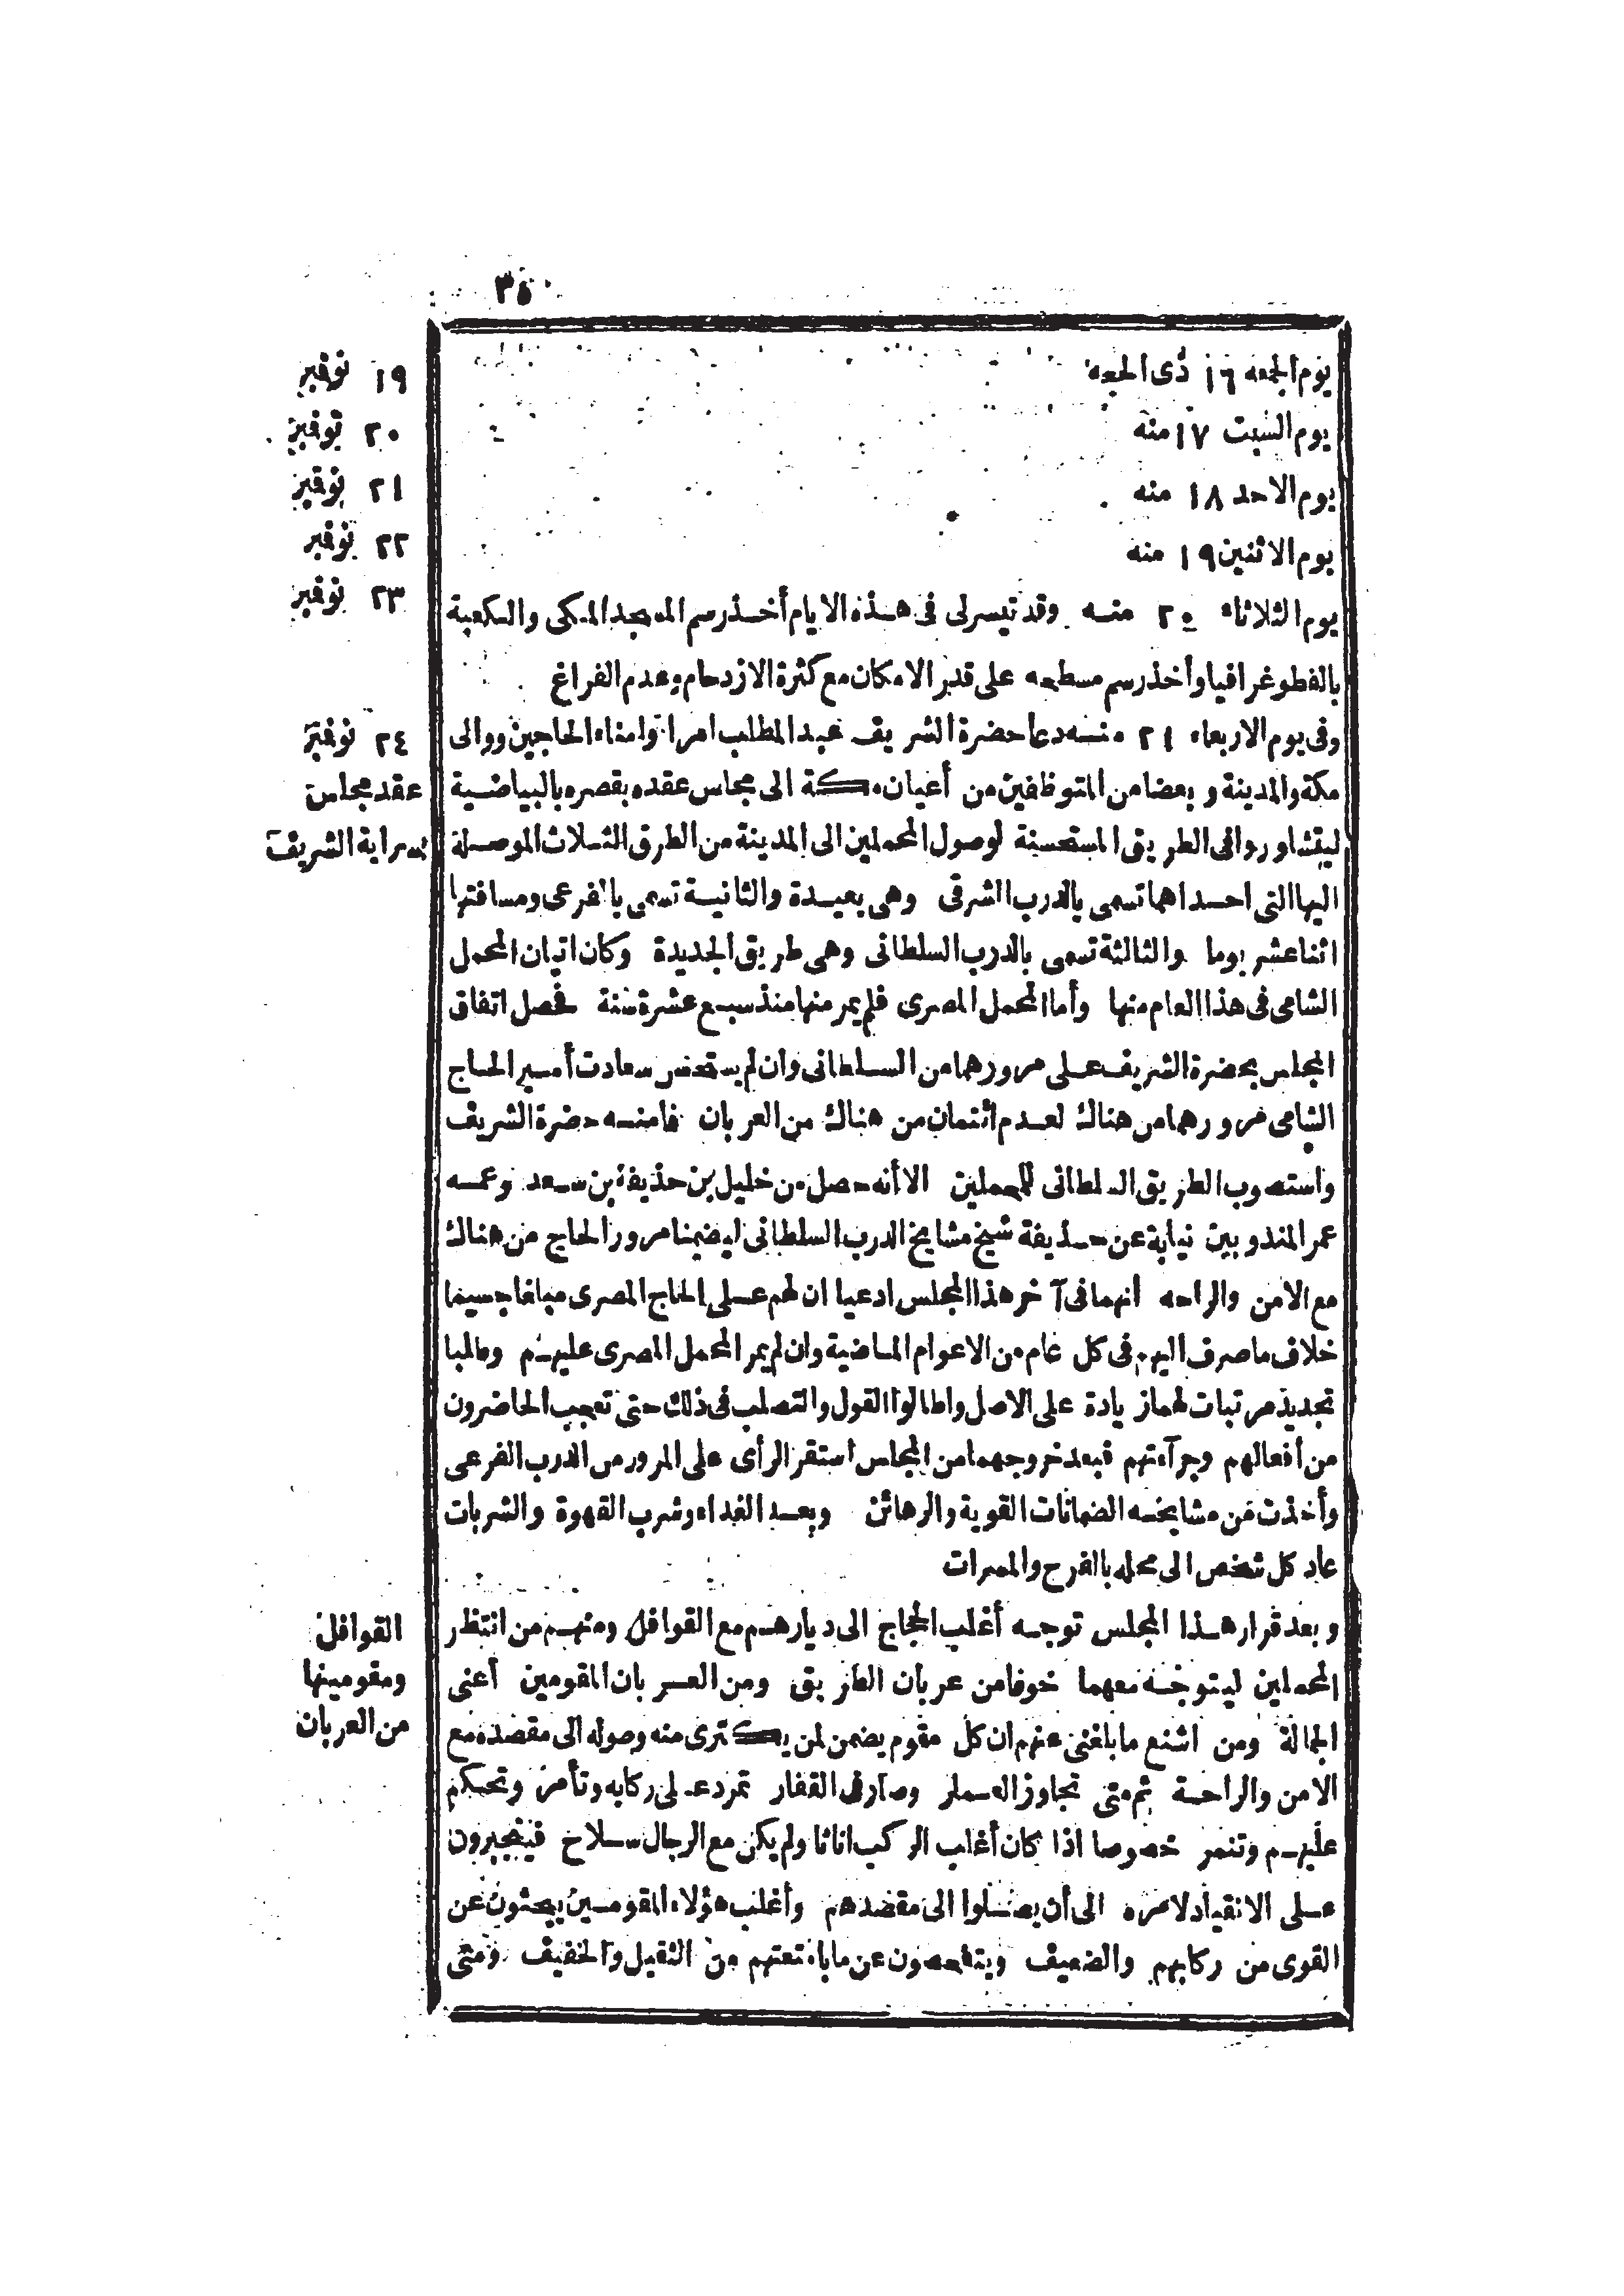 ٣٥
يوم الجمعه ١٦ ذى الحجه
١٩ نوفمبر
يوم السبت ١٧ منه
٢٠ نوفمبر
يوم الاحد ١٨ منه
٢١ نوفمبر
يوم الاثنين ١٩ منه
٢٢ نوفمبر
يوم الثلاثاء ٢٠ منه وقد تيسر لى فى هذه الايام أخذ رسم المسجد المكى والكعبة
٢٣ نوفمبر
بالفطوغرافيا وأخذ رسم مسطحه على قدر الامكان مع كثرة الازدحام وعدم الفراغ
وفى يوم الاربعاء ٢١ منه دعا حضرة الشريف عبد المطلب امرا وامناء الحاجين ووالى
٢٤ نوفمبر
مكة والمدينة وبعضا من المتوظفين من أعيان مكة الى مجلس عقده بقصره بالبياضية
عقد مجلس
ليتشاوروا فى الطريق المستحسنة لوصول المحملين الى المدينة من الطرق الثلاث الموصلة
بسراية الشريف
اليها التى احداهما تسمى بالدرب الشرقى وهى بعيدة والثانية تسمى بالفرعى ومسافتها
اثنا عشر يوما والثالثة تسمى بالدرب السلطانى وهى طريق الجديدة وكان اتيان المحمل
الشامى فى هذا العام منها وأما المحمل المصرى فلم يمر منها منذ سبع عشرة سنة فحصل اتفاق
المجلس بحضرة الشريف على مرورهما من السلطانى وان لم يستحسن سعادت أمير الحاج
الشامى مرورهما من هناك لعدم ائتمان من هناك من العربان فامنه حضرة الشريف
واستصوب الطريق السلطانى للمحملين الا أنه حصل من خليل بن حذيفة بن سعد وعمه
عمر المندوبين نيابة عن حذيفة شيخ مشايخ الدرب السلطانى ليضمنا مرور الحاج من هناك
مع الامن والراحه انهما فى آخر هذا المجلس ادعيا ان لهم على الحاج المصرى مبلغا جسيما
خلاف ما صرف اليهم فى كل عام من الاعوام الماضية وان لم يمر المحمل المصرى عليهم وطالبا
تجديد مرتبات لهما زيادة على الاصل واطالوا القول والتصلب فى ذلك حتى تعجب الحاضرون
من أفعالهم وجرآءتهم فبعد خروجهما من المجلس استقر الرأى على المرور من الدرب الفرعى
وأخذت من مشايخه الضمانات القوية والرهائن وبعد الغداء وشرب القهوة والشربات
عاد كل شخص الى محله بالفرح والمسرات
وبعد قرار هذا المجلس توجه أغلب الحجاج الى ديارهم مع القوافل ومنهم من انتظر
القوافل
المحملين ليتوجه معهما خوفا من عربان الطريق ومن العربان المقومين أعنى
ومقومينها
الجمالة ومن اشنع ما بلغنى عنهم ان كل مقوم يضمن لمن يكترى منه وصوله الى مقصده مع
من العربان
الامن والراحة ثم متى تجاوز العمار وصار فى القفار تمرد على ركابه وتأمر وتحكم
عليهم وتنمر خصوصا اذا كان أغلب الركب اناثا ولم يكن مع الرجال سلاح فينجبرون
على الانقياد لامره الى أن يصلوا الى مقصدهم وأغلب هؤلاء المقومين يبحثون عن
القوى من ركابهم والضعيف ويتفحصون عن ما بامتعتهم من الثقيل والخفيف ومتى